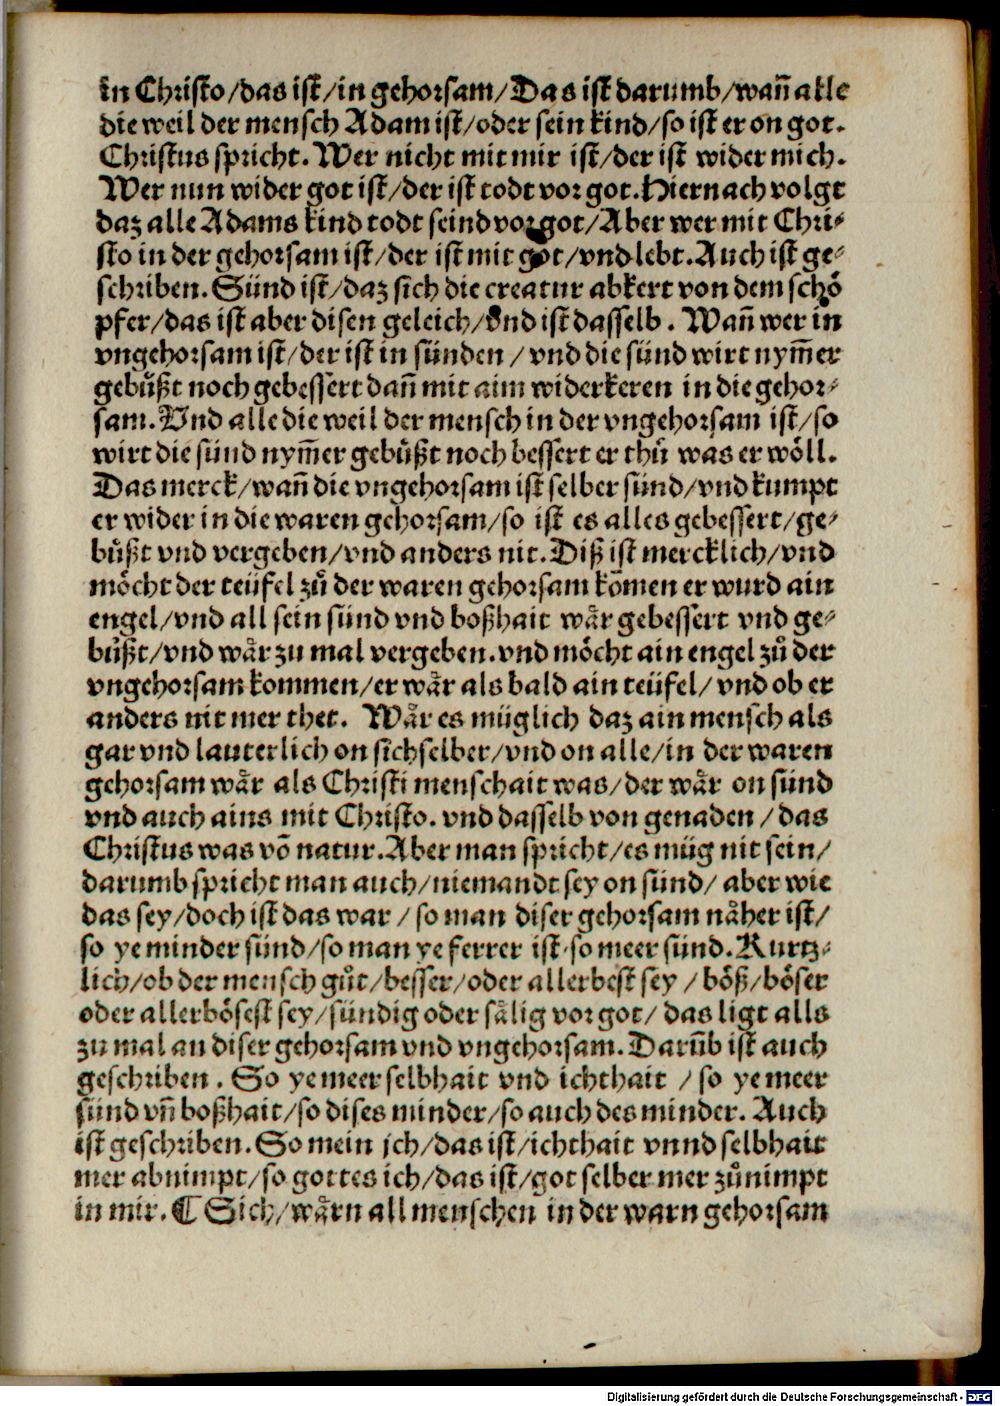 in Christo/das ist/in gehorsam/Das ist darumb/wañ alle
die weil der mensch Adam ist/oder sein kind/so ist er on got.
Christus spricht. Wer nicht mit mir ist/der ist wider mich.
Wer nun wider got ist/der ist todt vor got. Hiernach volgt
daz alle Adams kind todt seind vor got/Aber wer mit Chri-
sto in der gehorsam ist/der ist mit got/vnd lebt. Auch ist ge-
schriben. Sünd ist/daz sich die creatur abkert von dem schö
pfer/das ist aber disen geleich/vnd ist dasselb. Wañ wer in
vngehorsam ist/der ist in sünden/vnd die sünd wirt nym̃er
gebuͤßt noch gebessert dañ mit aim widerkeren in die gehor-
sam. Vnd alle die weil der mensch in der vngehorsam ist/so
wirt die sünd nym̃er gebuͤßt noch bessert er thuͤ was er wöll.
Das merck/wañ die vngehorsam ist selber sünd/vnd kumpt
er wider in die waren gehorsam/so ist es alles gebessert/ge-
buͤßt vnd vergeben/vnd anders nit. Diß ist mercklich/vnd
möcht der teüfel zuͦ der waren gehorsam kõmen er wurd ain
engel/vnd all sein sünd vnd boßhait wår gebessert vnd ge-
buͤßt/vnd wår zu mal vergeben. vnd möcht ain engel zuͦ der
vngehorsam kommen/er wår als bald ain teüfel/vnd ob er
anders nit mer thet. Wår es müglich daz ain mensch als
gar vnd lauterlich on sichselber/vnd on alle/in der waren
gehorsam wår als Christi menschait was/der wår on sünd
vnd auch ains mit Christo. vnd dasselb von genaden/das
Christus was võ natur. Aber man spricht/es müg nit sein/
darumb spricht man auch/niemandt sey on sünd/aber wie
das sey/doch ist das war/so man diser gehorsam näher ist/
so ye minder sünd/so man ye ferrer ist so meer sünd. Kurtz-
lich/ob der mensch guͦt/besser/oder allerbest sey/böß/böser
oder allerbösest sey/sündig oder sälig vor got/das ligt alls
zu mal an diser gehorsam vnd vngehorsam. Darũb ist auch
geschriben. So ye meer selbhait vnd ichthait/so ye meer
sünd vñ boßhait/so dises minder/so auch des minder. Auch
ist geschriben. So mein ich/das ist/ichthait vnnd selbhait
mer abnimpt/so gottes ich/das ist/got selber mer zuͦnimpt
in mir. ¶ Sich/wårn all menschen in der warn gehorsam
Digitalisierung gefördert durch die Deutsche Forschungsgemeinschaft - DFG